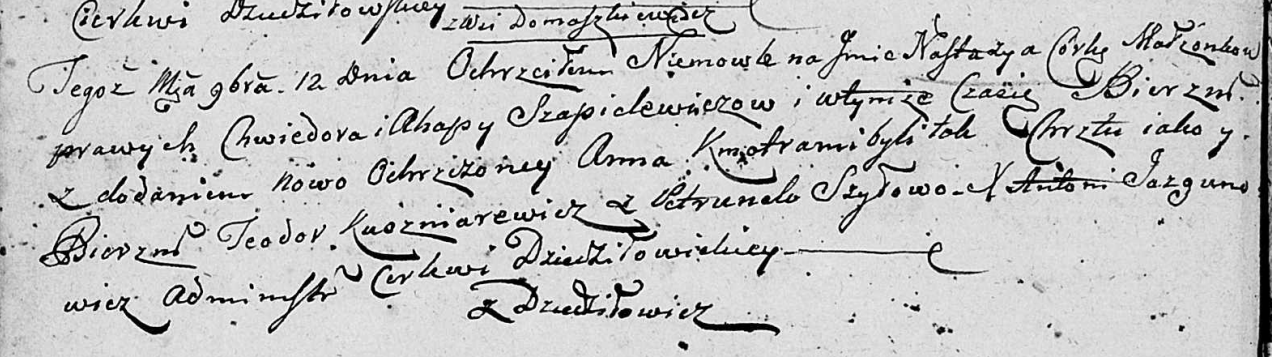 Cierkwi Dziedziłowskiey zwsi Domaszkiewicz
Tegoż Mca 9bra. 12 Dnia Ochrzciłem Niemowle na Jmie Nastazya Córkę Małzonkow
prawych Chwiedora i Ahapy Szapielewiczow i wtymże Czasie Bierzm.
z dodaniem nowo Ochrzczoney Anna Kmotrami byli tak Chrztu iako y.
Bierzm Teodor Kuszniarewicz z Petrunelo Szyłowo - X Antoni Jazguno
wicz Administr Cerkwi Dziedziłowickiey
z Dziedziłowicz